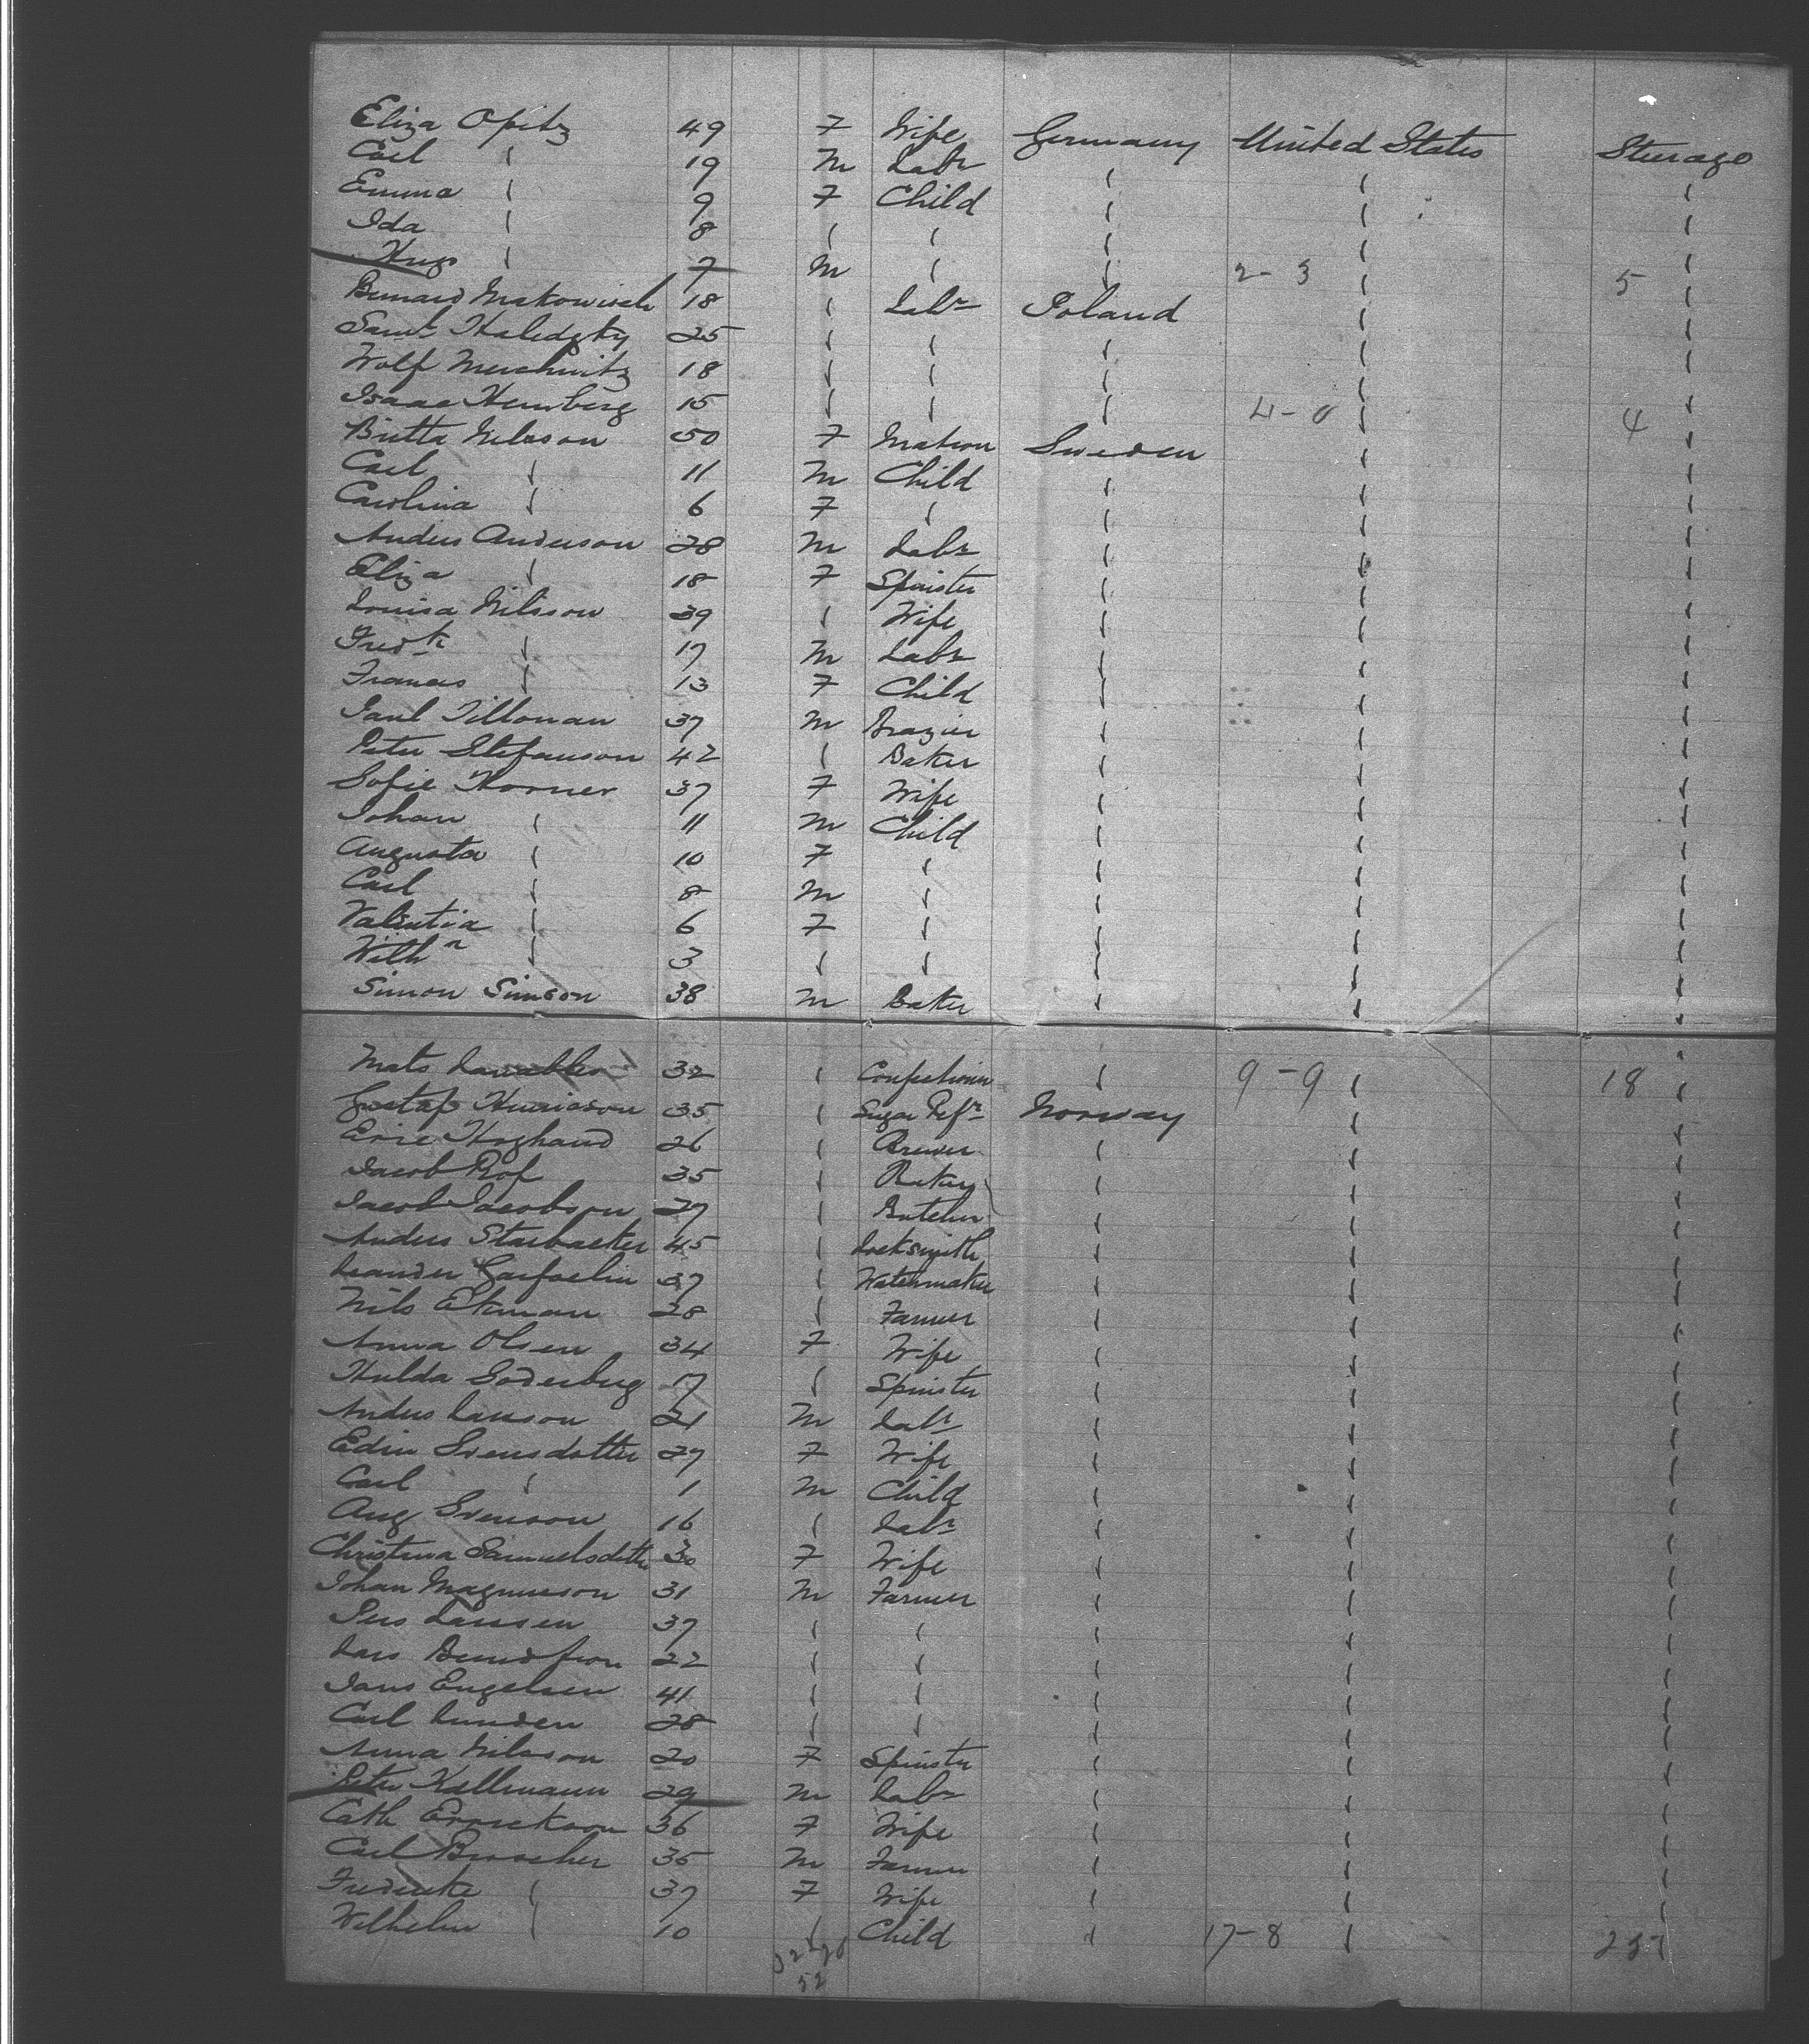 Eliza Opitz 49 F Wife Germany United States Steerage
Carl " 19 M Labr " " "
Emma " 9 F Child " " "
Ida " 8 " " " " "
Hugo " 7 M " " 2-3 " 5 "
18 " Labr Poland " "
Saml 25 " " " " "
Wolf 18 " " " " "
Isaac 15 " " " 4-0 " 4 "
Britta Nilsson 50 F Matron Sweden " "
Carl " 11 M Child " " "
Carolina " 6 F " " " "
Anders Anderson 28 M Labr " " "
Eliza " 18 F Spinster " " "
Louisa Nilsson 39 " Wife " " "
Fredk " 17 M Labr " " "
Frances " 13 F Child " " "
Paul Tillonan 37 M Brazier " " "
Peter Stefanson 42 " Baker " " "
Sofie Horner 37 F Wife " " "
Johan " 11 M Child " " "
Augusta " 10 F " " " "
Carl " 8 M " " " "
Valentia " 6 F " " " "
" 3 " " " " "
Simon Simson 38 M Baker " " "
Mats 32 " " 9-9 " 18 "
Gustaf 35 " Sugar Refr Norway " "
Eric Hoghand 26 " Brewer " " "
Jacob Rof 35 " Baker " " "
Jacob Jacobson 27 " Butcher " " "
Anders Starbacker 45 " Locksmith " " "
Leander 37 " Watchmaker " " "
Nils Ekman 28 " Farmer " " "
Anna Olsen 34 F Wife " " "
Hulda Soderberg 17 " Spinster " " "
Anders Larson 21 M Labr " " "
Edin Svensdotter 27 F Wife " " "
Carl " 1 M Child " " "
Aug Svenson 16 " Labr " " "
Christina Samuelsdotter 30 F Wife " " "
Johan Magnusson 31 M Farmer " " "
Pers Larsen 37 " " " " "
Lars 22 " " " " "
Jans Engelsen 41 " " " " "
Carl Lunden 28 " " " " "
Anna Nilsson 20 F Spinster " " "
Peter Kallmann 29 M Labr " " "
Cath Errickson 36 F Wife " " "
Carl 35 M Farmer " " "
Frederike " 37 F Wife " " "
Wilhelm " 10 " Child " 17-8 " "
52